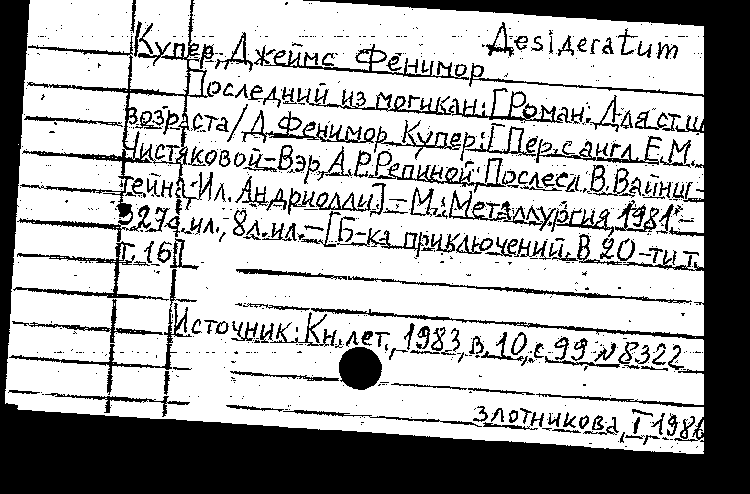 Desideratum
Купер, Джеймс Фенимор
Последний из могикан: [Роман. Для ст. ш
возраста / Д. Фенимор Купер: [Пер. с англ. Е. М.
Чистяковой-Вэр, А. Р. Репиной; Послесл. В. Вайнш-
тейна; Ил. Андриолли]. - М.: Металлургия, 1981. -
327 с. ил., 8 л. ил. - [Б-ка приключений. В 20-ти т.
т. 16]
Источник: Кн. лет., 1983, в. 10, с. 99, № 8322
Злотникова, I, 1986